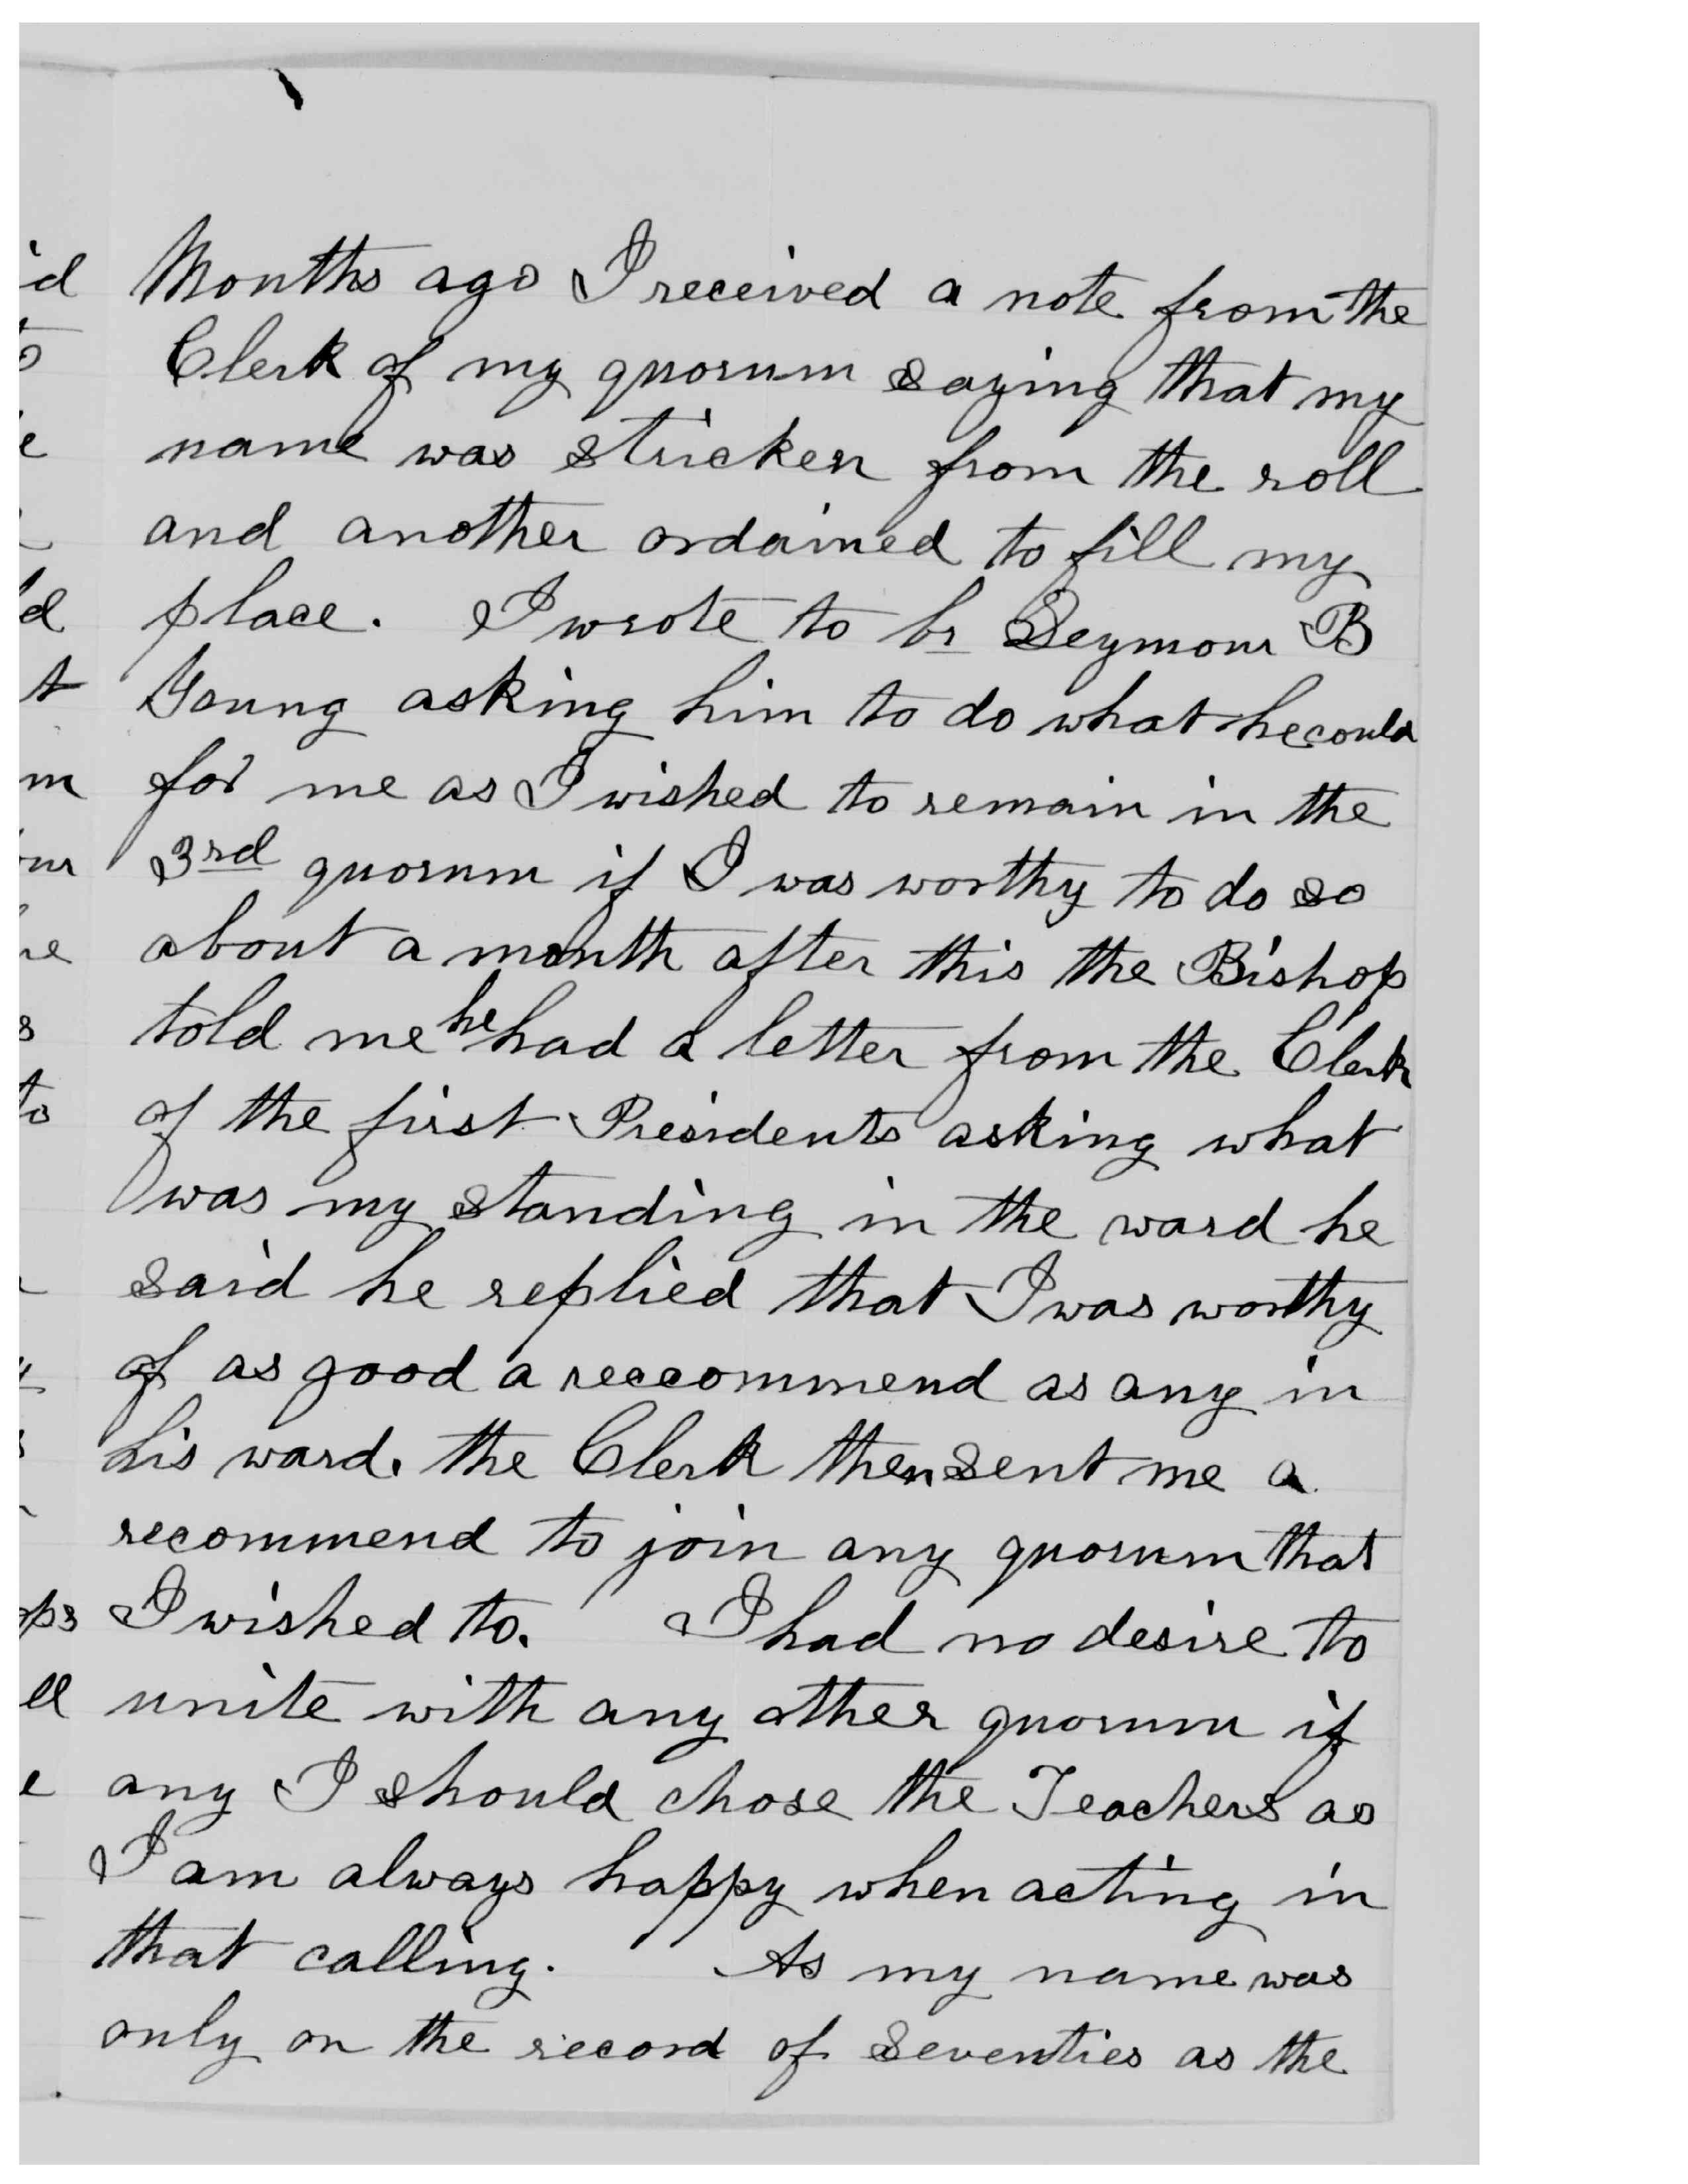 Months ago I received a note from the
Clerk of my quorum saying that my
name was stricken from the roll
and another ordained to fill my
place. I wrote to br Seymour B
Young asking him to do what he could
for me as I wished to remain in the
3rd quorum if I was worthy to do so
about a month after this the Bishop
told me he had a letter from the Clerk
of the first Presidents asking what
was my standing in the ward he
said he replied that I was worthy
of as good a reccommend as any in
his ward. the Clerk then sent me a
recommend to join any quorum that
I wished to. I had no desire to
unite with any other quorum if
any I should chose the Teachers as
I am always happy when acting in
that calling. As my name was
only on the record of Seventies as the